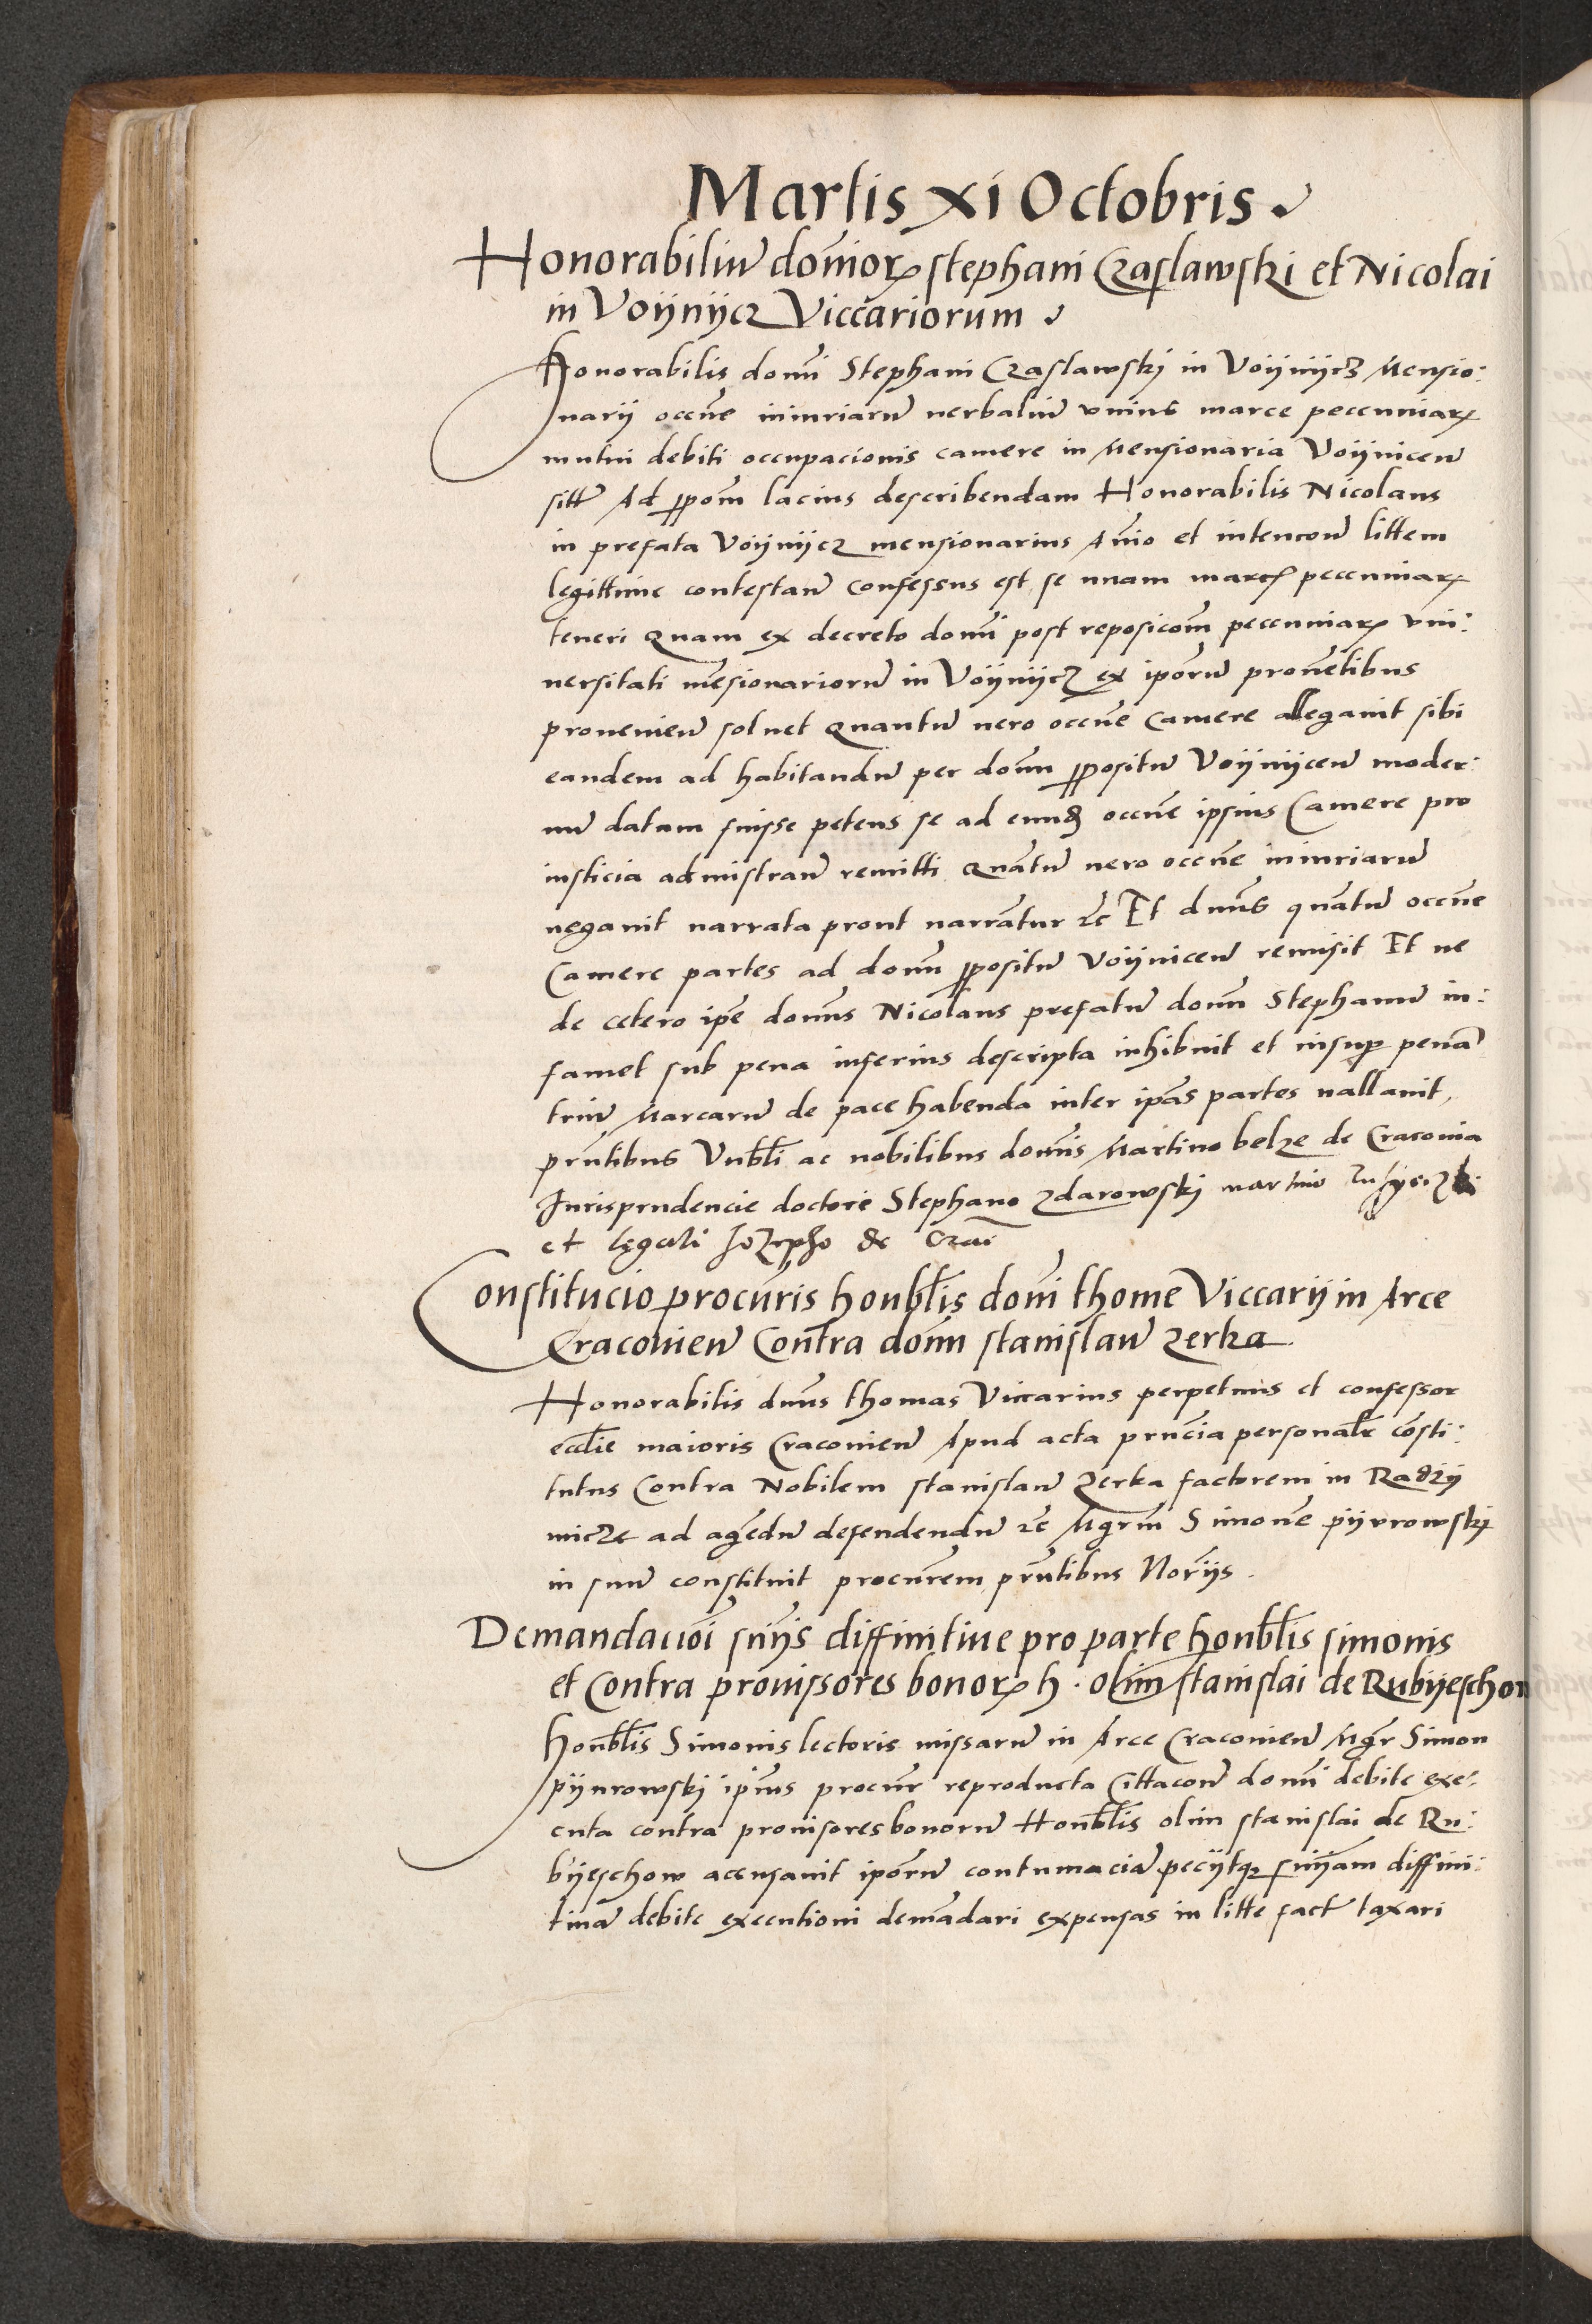 Martis xi Octobris
Honorabiliũ domĩorꝝ stephani Czaslawski et Nicolai
in Voÿnÿcz Viccariorum
Honorabilis domĩ Stephani Czaslawskj in Voÿnÿcz Mensio:
narij occñe iniuriarũ uerbaliũ vnius marce peccuniarꝝ
mutui debiti occupacionis camere in Mensionaria Voÿnicen̄
sitt̃ Ad ꝓpom̃ lacius describendam Honorabilis Nicolaus
in prefata Voÿnÿcz mensionarius Aĩo et intencoñ littem
legittime contestan̄ confessus est se unam marcẽ peccuniarꝝ
teneri Quam ex decreto domĩ post reposicom̃ peccuniarꝝ vni:
uersitati mẽsionariorũ in Voÿnÿcz ex ipõrũ prouẽtibus
prouenien̄ soluet Quantũ uero occñe Camere allegauit sibi
eandem ad habitandũ per domñ ꝓpositũ Voÿnÿcen̄ moder:
nũ datam fuisse petens se ad eundẽ occñe ipsius Camere pro
iusticia admistran̄ remitti Quãtũ uero occñe iniuriarũ
negauit narrata prout narrãtur ⁊c̃ Et dnũs quãtũ occñe
Camere partes ad domñ ꝓpositũ Voÿnicen̄ remisit Et ne
de cetero ipẽ domñs Nicolaus prefatũ domñ Stephanũ in:
famet sub pena inferius descripta inhibuit et insuꝑ penã
triũ Marcarũ de pace habenda inter ipãs partes uallauit,
prñtibus Vnbl̃i ac nobilibus domĩs Martino belze de Cracouia
Jurisprudencie doctore Stephano zdarowskj martino
et legali Jozepho de Crac̃
Constitucio procurĩs honbl̃is domĩ thome Viccarij in Arce
Cracouien̄ Contra domñ stanislaũ zerka
Honorabilis dnũs thomas Viccarius perpetuus et confessor
eccl̃ie maioris Cracouien̄ Apud acta prñcia personal̃r cõsti:
tutus Contra Nobilem stanislaũ zerka factorem in Radzÿ
micze ad agẽdũ defendendũ ⁊c̃ Mgrm̃ Simonẽ pÿurowskj
in suũ constituit procurẽm prñtibus Norĩjs.
Demandacioĩ sniĩs diffinitiue pro parte honbl̃is simonis
et Contra prouissores bonorꝝ h. olim stanislai de Rubÿeschow
honbl̃is Simonis lectoris missarũ in Arce Cracouien̄ Mgr̃ Simon
pÿurowskj ipĩus procur̃ reproducta Cittacoñ domĩ debite exe:
cuta contra prouisores bonorũ Honbl̃is olim stanislai de Ru:
bÿeschow accusauit ipõrũ contumaciã pecÿtqꝫ sniãm diffini:
tiuã debite executioni demãdari expensas in litte fact̃ taxari